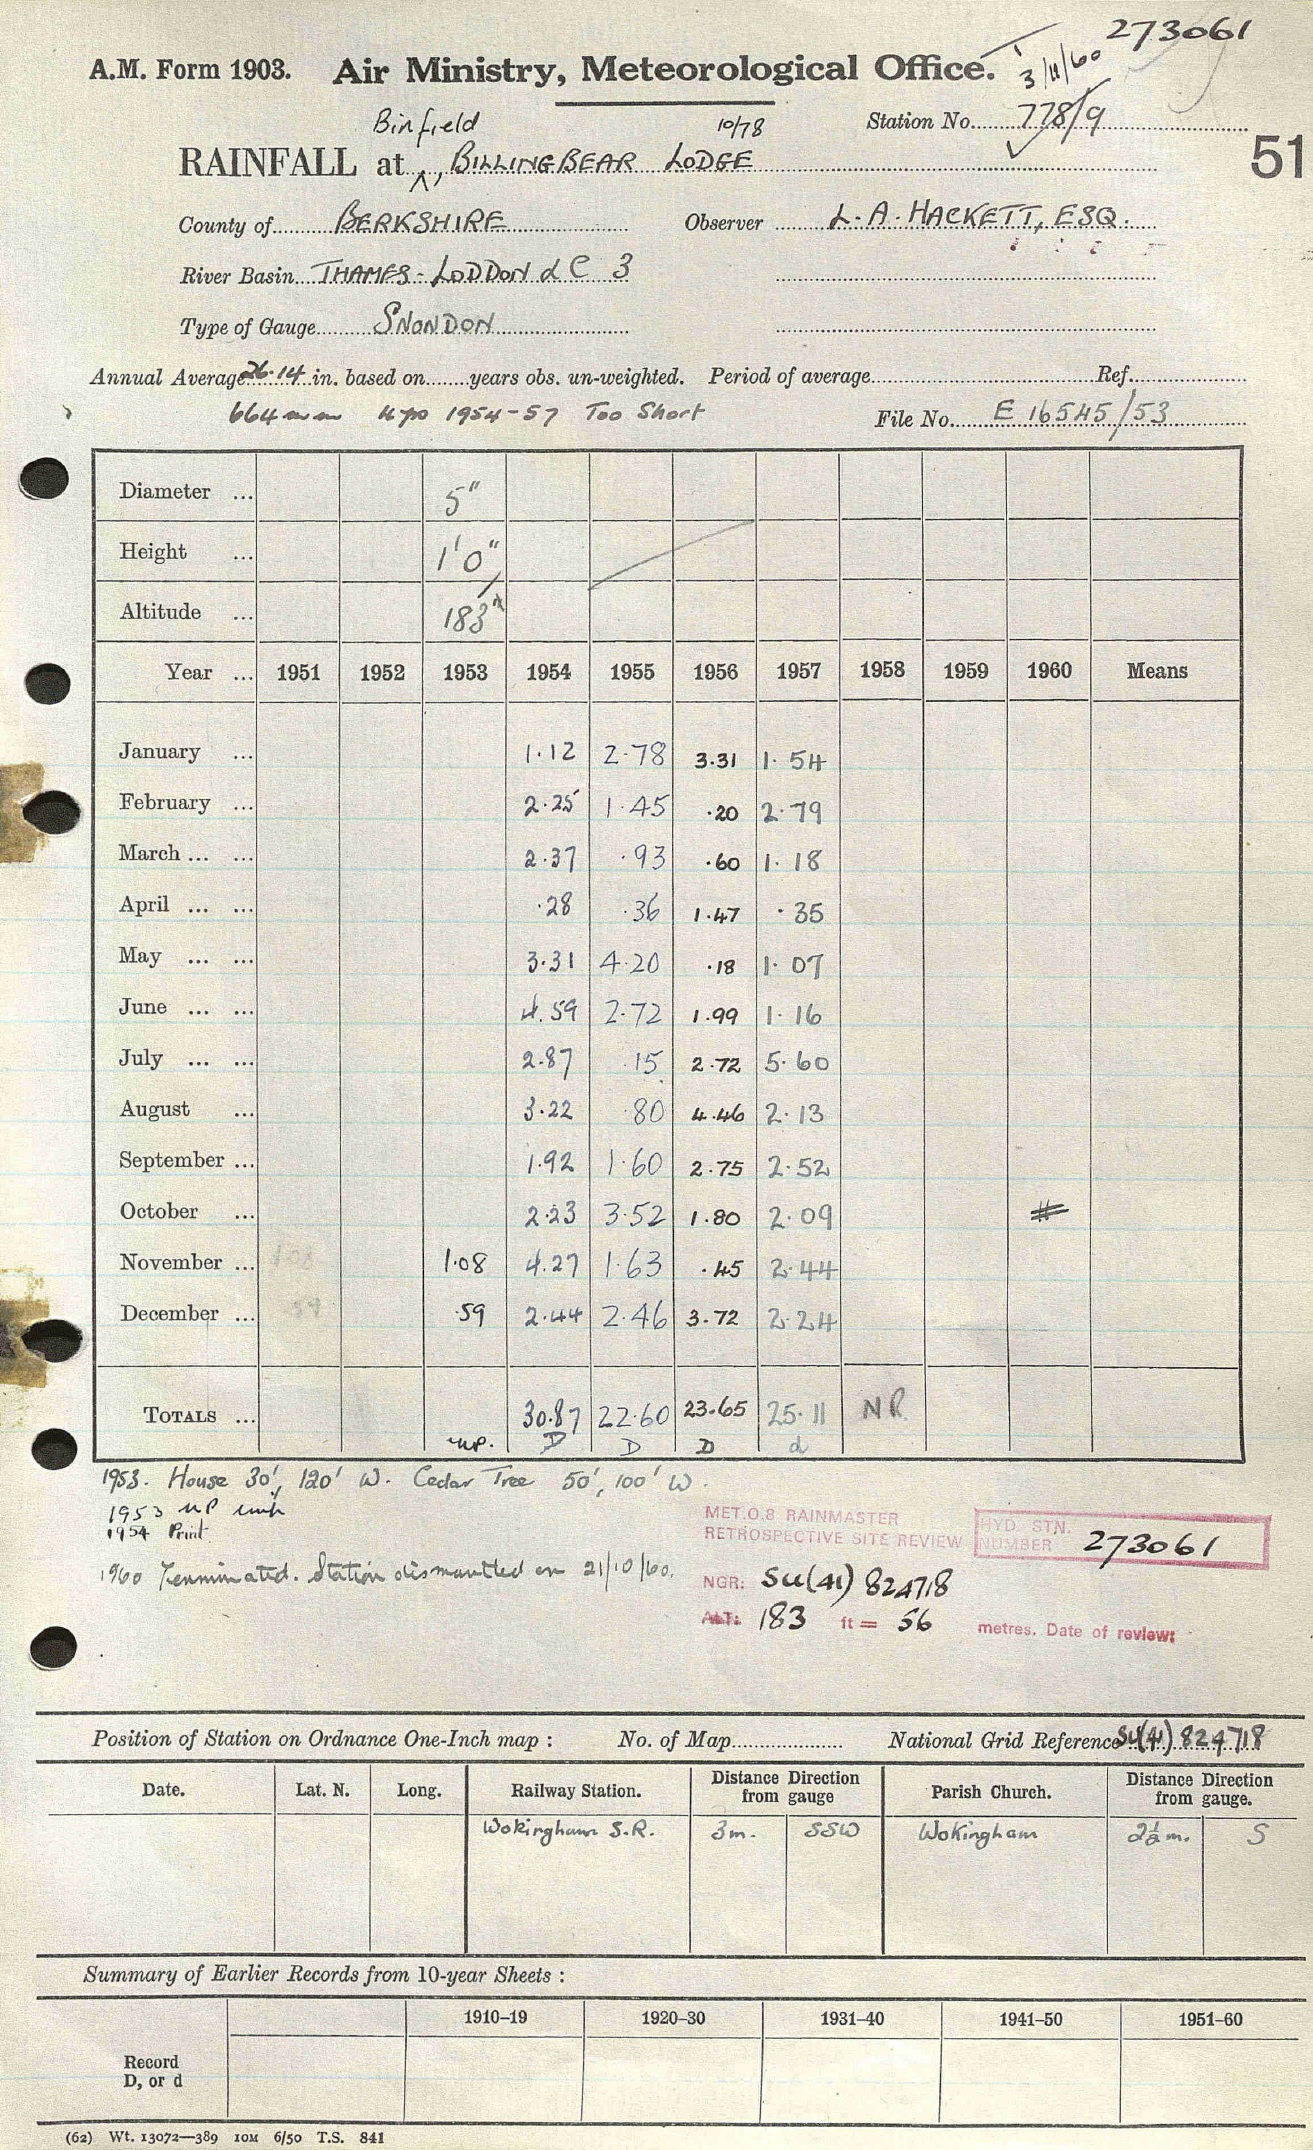 273061
A.M. Form 1903. Air Ministry, Meteorological Office. 3/11/60
Binfield 10/78 Station No. 778/9
RAINFALL at , BILLINGBEAR LODGE
51
County of BERKSHIRE Observer L. A. HACKETT, ESQ.
River Basin THAMES - LODDON & C 3
Type of Gauge SNOWDON
Annual Average 26.14 in. based on years obs. un-weighted. Period of average Ref.
664 mm 4 yrs 1954-57 Too Short File No. E 16545/53
Diameter ... 5"
Height ... 1'0"
Altitude ... 183
Year ... 1951 1952 1953 1954 1955 1956 1957 1958 1959 1960 Means
January ... 1.12 2.78 3.31 1.54
February ... 2.25 1.45 .20 2.79
March ... ... 2.37 .93 .60 1.18
April ... ... .28 .36 1.47 .35
May ... ... 3.31 4.20 .18 1.07
June ... ... 4.59 2.72 1.99 1.16
July ... ... 2.87 .15 2.72 5.60
August ... 3.22 .80 4.46 2.13
September ... 1.92 1.60 2.75 2.52
October ... 2.23 3.52 1.80 2.09 #
November ... 1.08 1.08 4.27 1.63 .45 2.44
December ... .59 .59 2.44 2.46 3.72 2.24
TOTALS ... 30.87 22.60 23.65 25.11 NR
D D D d
1953. House 30', 120' W. Cedar Tree 50', 100' W.
1953 NP
1954 Print
1960 Terminated. Station dismantled on 21/10/60.
MET.O.8 RAINMASTER
RETROSPECTIVE SITE REVIEW
HYD. STN. NUMBER 273061
NGR: SU(41) 824718
ALT: 183 ft = 56 metres. Date of review:
Position of Station on Ordnance One-Inch map : No. of Map National Grid Reference SU(41) 824718
Date. Lat. N. Long. Railway Station. Distance from gauge Direction Parish Church. Distance from gauge. Direction
Wokingham S.R. 3m. SSW Wokingham 2½ m. S
Summary of Earlier Records from 10-year Sheets :
1910–19 1920–30 1931–40 1941–50 1951–60
Record
D, or d
(62) Wt. 13072—389 10M 6/50 T.S. 841